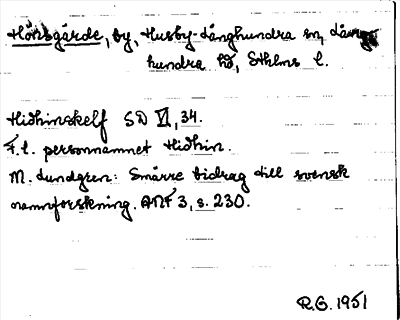 Hönsgärde, by, Husby-Långhundra sn, Lång-
hundra hd, Sthlms l.
Hidhinskelf SD VI, 34.
F.l. personnamnet Hidhin.
M. Lundgren: Smärre bidrag till svensk
namnforskning. ANF 3, s. 230.
R.G. 1951